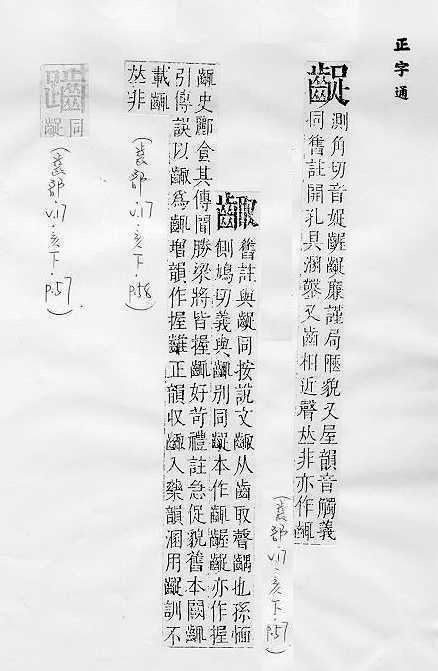 正字通
齪 測角切音娖齷齪廉謹局陿貌又屋韻音觸義
同舊註開孔具又齒相近聲𠀤非亦作齱
(齒部.v.17.亥下.p.57)
齱 舊註與齪同按說文齱从齒取聲齵也孫愐
側鳩切義與齱別同齪本作齱齷齪亦作握
齱史酈食其傳聞勝梁將皆握齱好苛禮註急促貌舊本闕齱
引傳誤以齱為齱增韻作握齱正韻収齱入藥韻溷用齪訓不
載齱
𠀤非
(齒部.v.17.亥下.p.58)
同齪
(齒部.v.17.亥下.p.57)